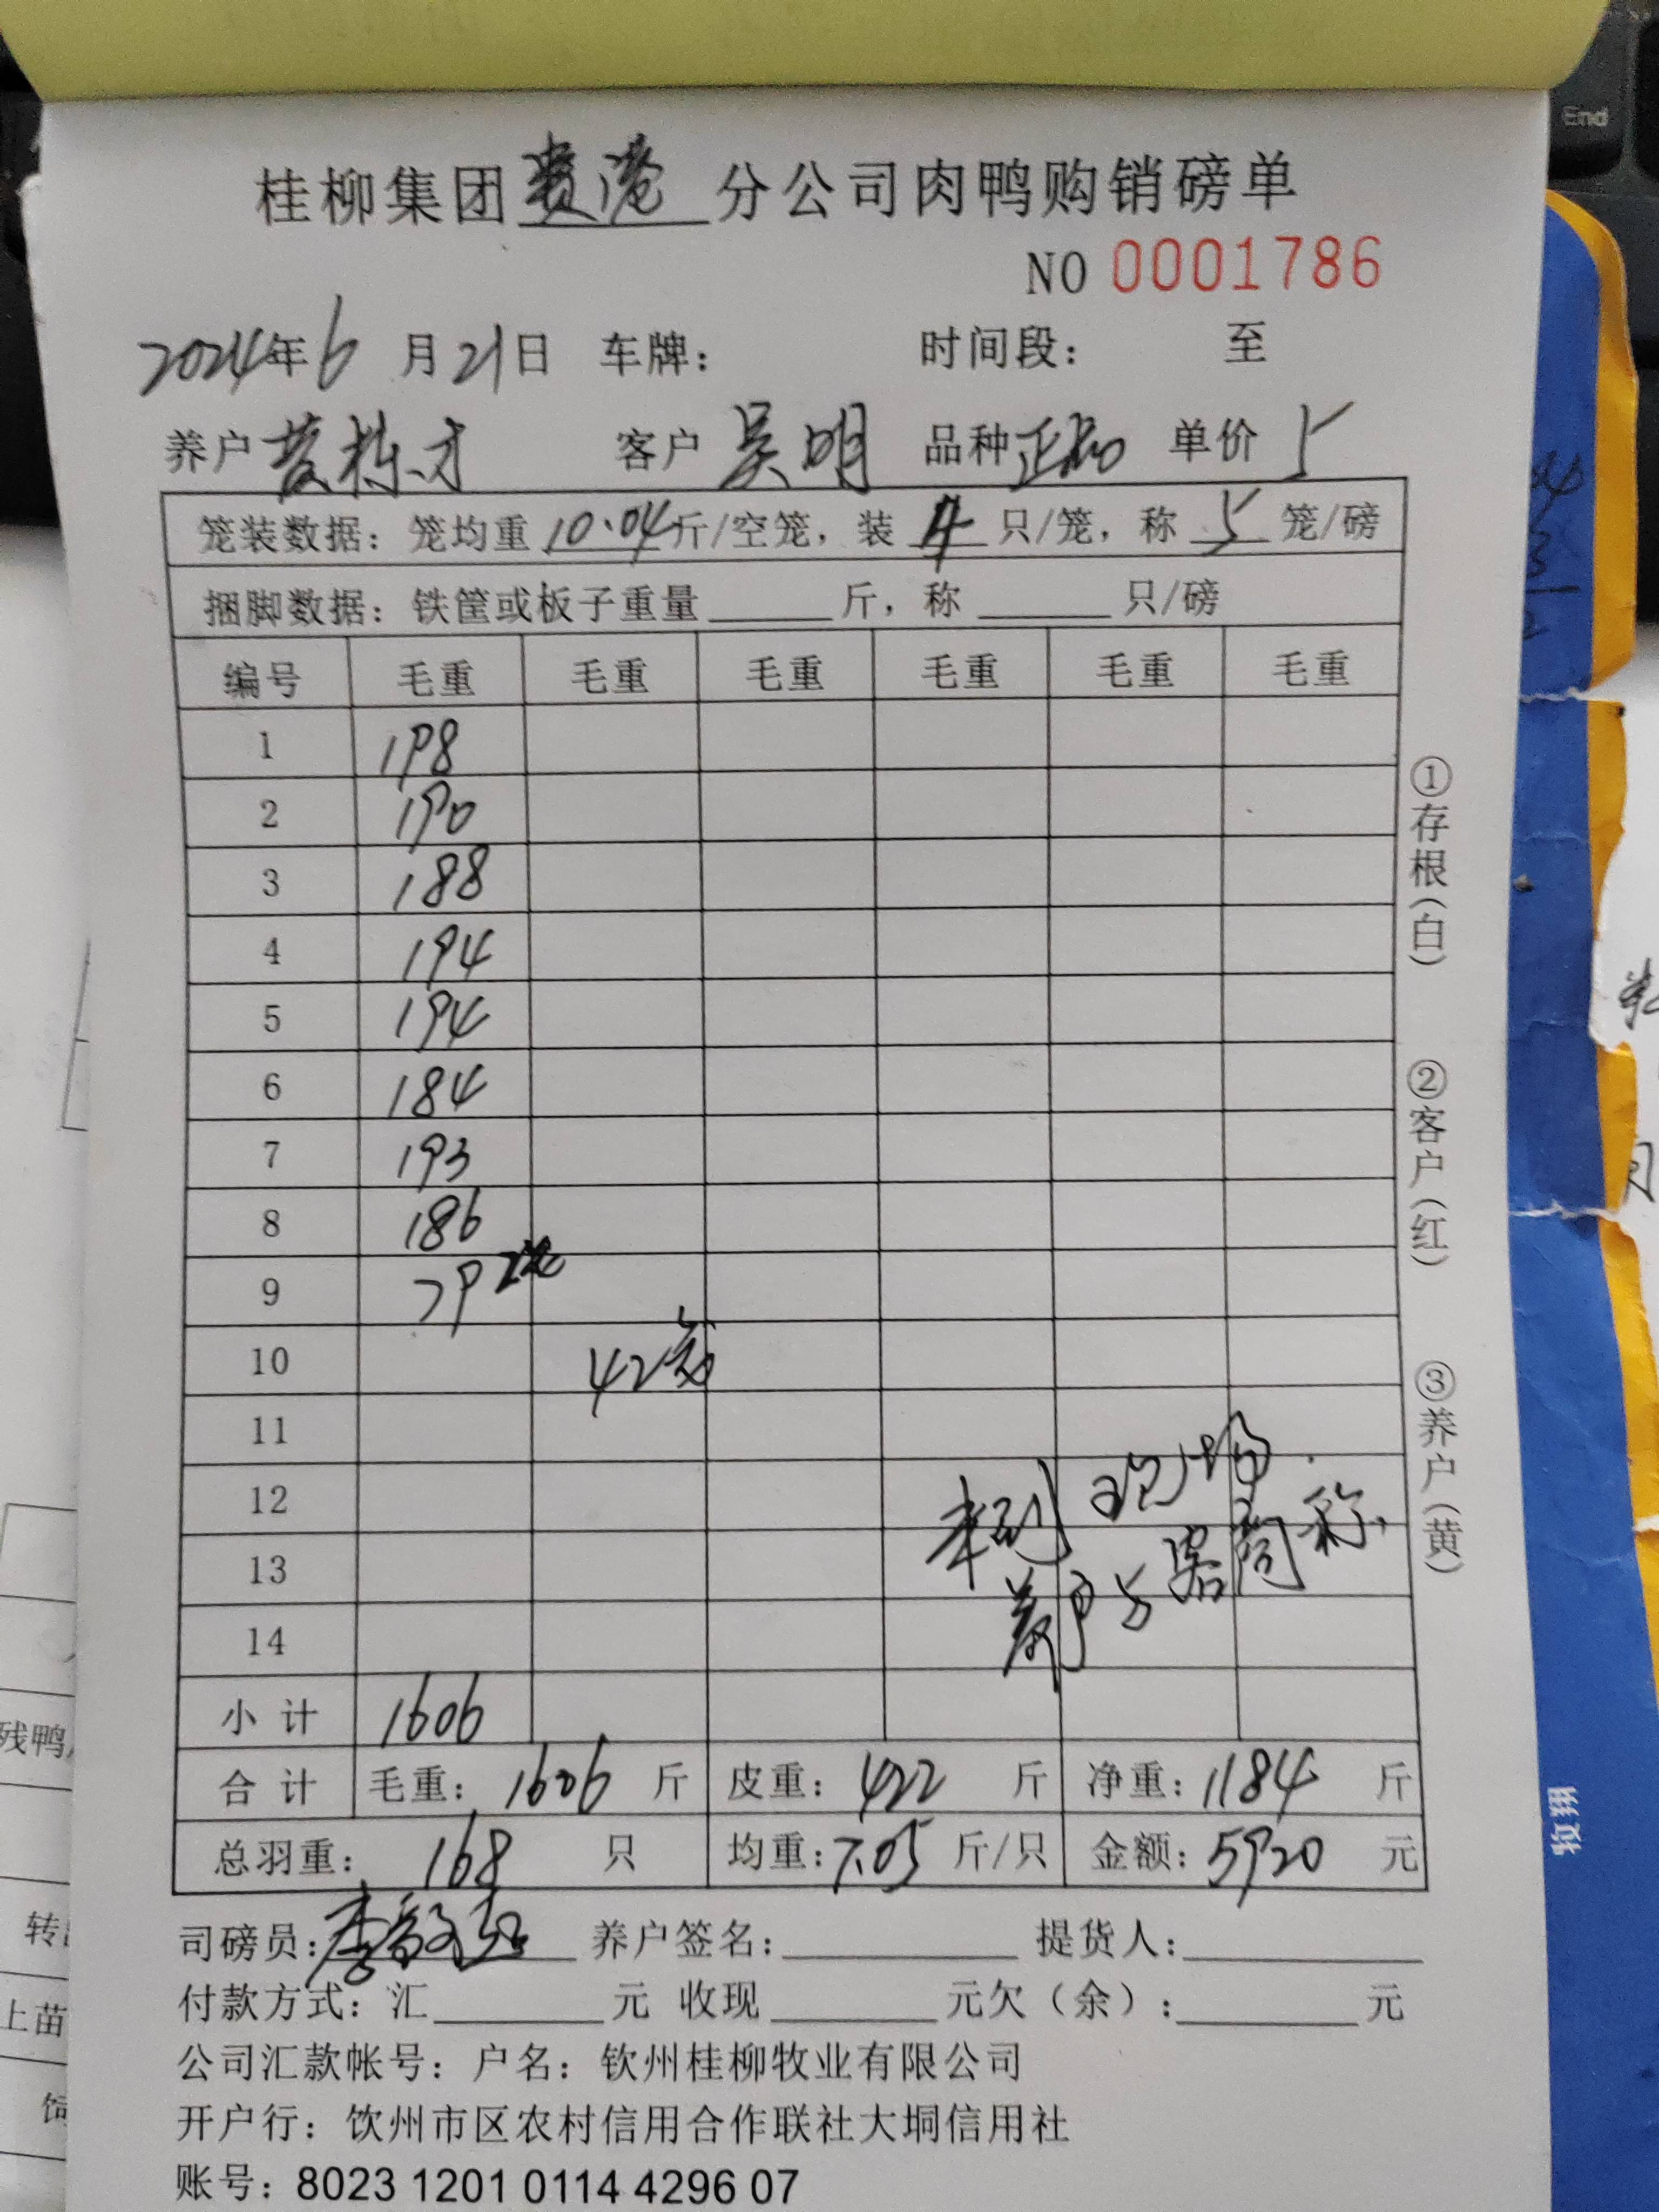 End
桂柳集团贵港分公司肉鸭购销磅单
NO 0001786
2024年6月21日 车牌： 时间段： 至
养户 黄栋才 客户 吴明 品种 正品 单价 5
笼装数据：笼均重10.04斤/空笼，装4只/笼，称5笼/磅
捆脚数据：铁筐或板子重量______斤，称______只/磅
编号 毛重 毛重 毛重 毛重 毛重 毛重
1 198
2 190
3 188
4 194
5 194
6 184
7 193
8 186
9 79 2笼
10 42笼
11
12 未到现场
13 养户与客商称
14
小计 1606
合计 毛重：1606斤 皮重：422斤 净重：1184斤
总羽重：168只 均重：7.05斤/只 金额：5920元
司磅员： 养户签名： 提货人：
付款方式：汇______元 收现______元欠（余）：______元
公司汇款帐号：户名：钦州桂柳牧业有限公司
开户行：饮州市区农村信用合作联社大垌信用社
账号：8023 1201 0114 4296 07
①存根（白）
②客户（红）
③养户（黄）
残鸭
上苗
牧翔